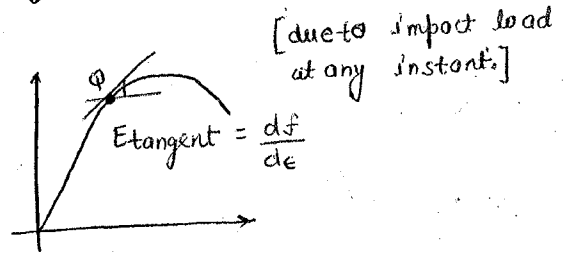 [due to impact load
at any instant.]
φ
Etangent = df/dϵ